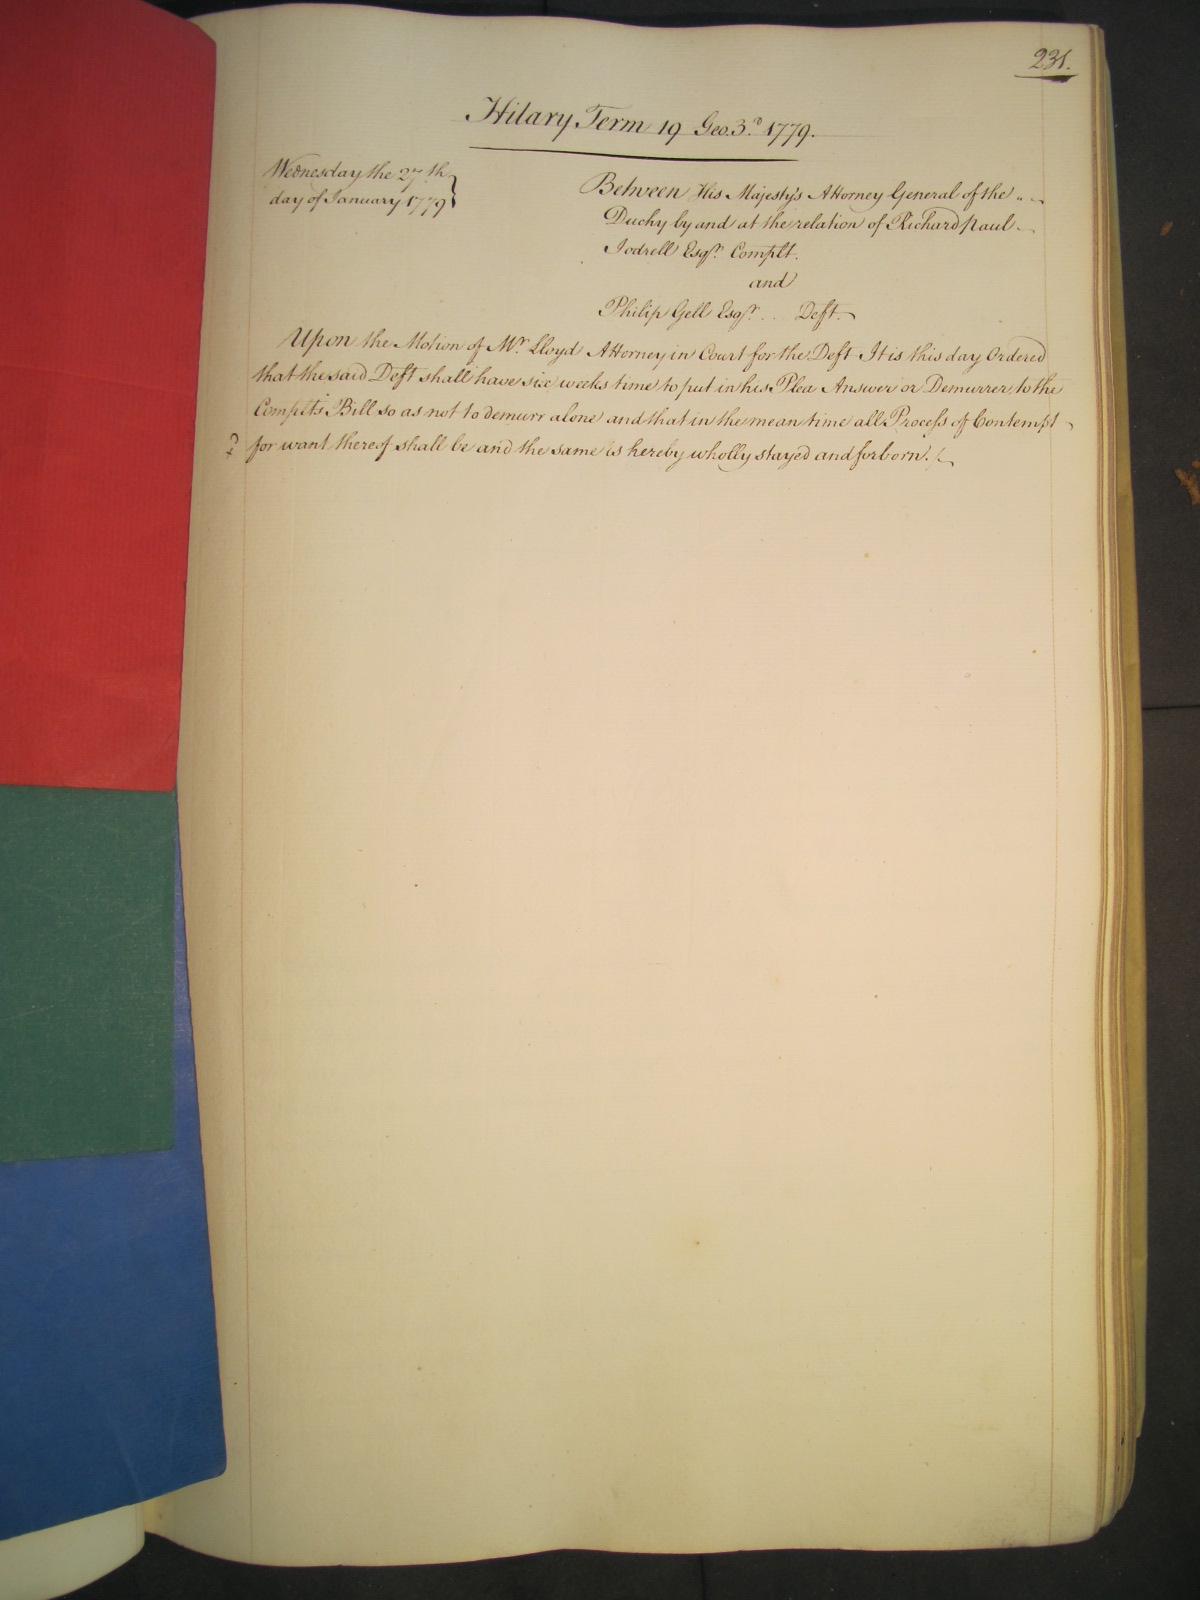 231.
Hilary Term 19 Geo. 3.d 1779.
Wednesday the 27th
day of January 1779
Between His Majesty's Attorney General of the
Duchy by and at the relation of Richard Paul
Jodrell Esqr. Complt.
and
Philip Gell Esqr. .. Deft.
Upon the Motion of Mr. Lloyd Attorney in Court for the Deft It is this day Ordered
that the said Deft shall have six weeks time to put in his Plea Answer or Demurrer to the
Complts Bill so as not to demurr alone and that in the mean time all Process of Contempt
for want thereof shall be and the same is hereby wholly stayed and forborn.